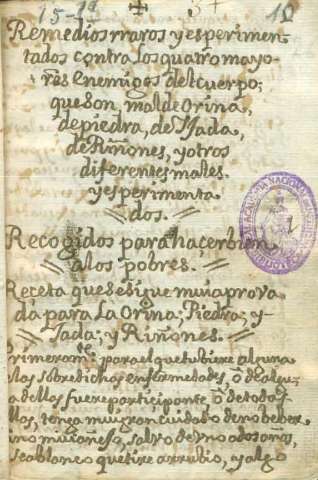 15-1ª
Remedios rraros y esperimen-
tados contra los quatro mayo-
res enemigos del cuerpo;
que son, mal de Orina,
de piedra, de Yjada,
de Riñones, y otros
diferentes males
y esperimenta
dos.
Recogidos para haçer bien
a los pobres.
Receta que se sigue mui aprova
da para la Orina; Piedra; y
Jada; y Riñones.
Primeramᵗᵉ para el que tubiere alguna
las sobredichas enfermedades, ô de algu
a dellos fuere participante ô de todo
llos, tenga mui gran cuidado de no beber
ino mui añejo, salvo de uno a dos años,
sea blanco que tire a rrubio, y algo